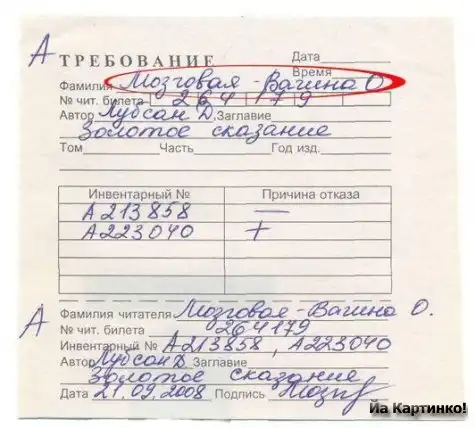 А ТРЕБОВАНИЕ Дата
Время
Фамилия Мозговая-Вагина О
№ чит. билета 264179
Автор Лубсан Д. Заглавие
Золотое сказание
Том Часть Год изд.
Инвентарный № Причина отказа
А213858 —
А223040 +
А Фамилия читателя Мозговая-Вагина О.
№ чит. билета 264179
Инвентарный № А213858, А223040
Автор Лубсан Д Заглавие
Золотое сказание
Дата 21.09.2008 Подпись Мозг
Йа Картинко!